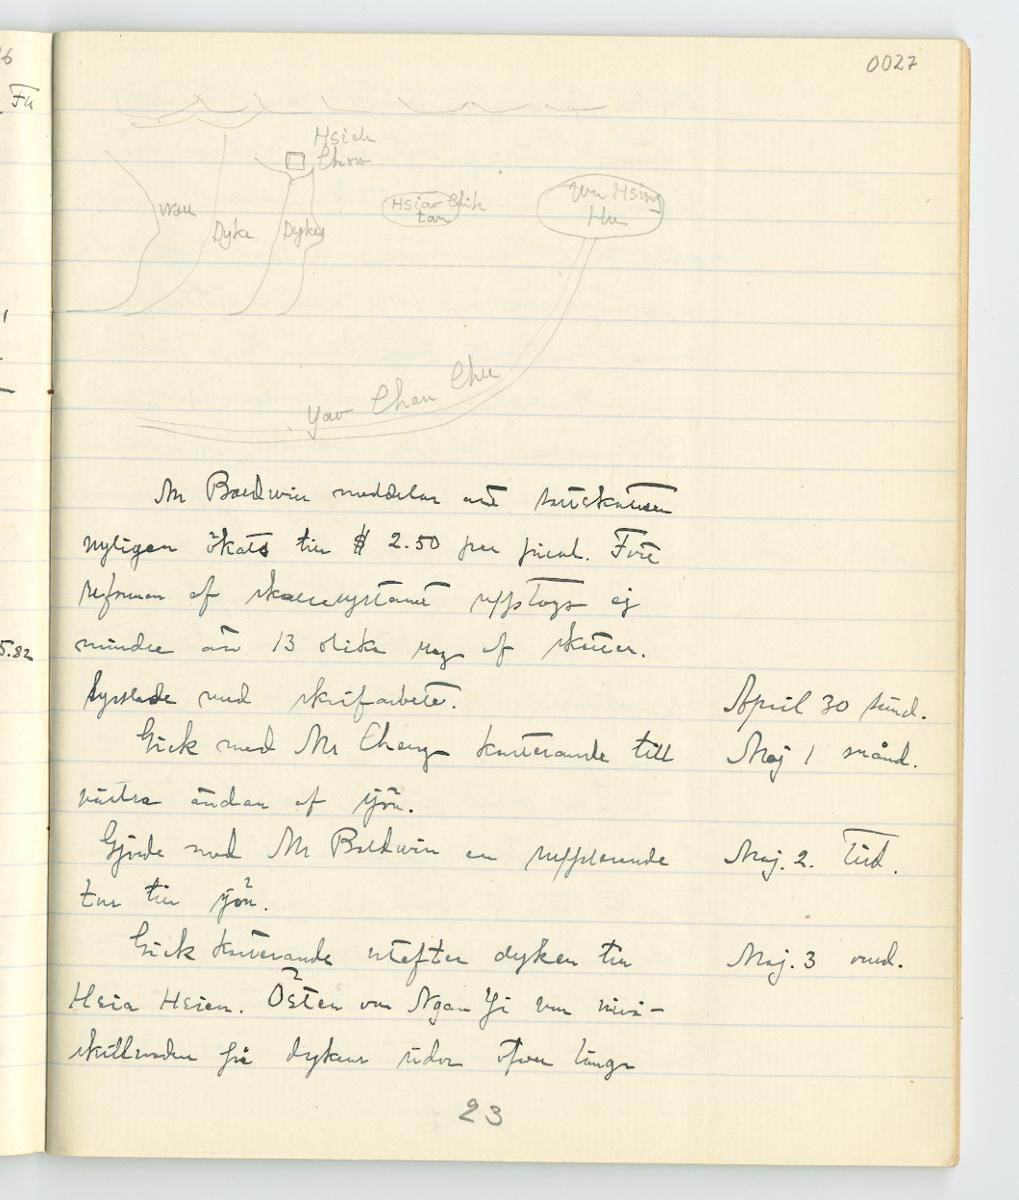 0027
Hsieh
Chow
Dyke
Dyke
Hsiao Chih
tan
Wu Hsing
Hu
Yao Chan Chu
Mr Baldwin meddelar att saltskatten
nyligen ökats till $ 2.50 per picul. Före
reformen af skattesystemet upptogs ej
mindre än 13 olika slag af skatter.
Sysslade med skrifarbete. April 30 sönd.
Gick med Mr Cheng karterande till Maj 1 månd.
västra ändan af sjön.
Gjorde med Mr Baldwin en Maj. 2. Tisd.
tur till sjön.
Gick karterande utefter dyken till Maj. 3 onsd.
Hsia Hsien. Östen om Ngan Yi var nivå-
skillnaden på dykens sidor öfver långa
23
Fu
5.82